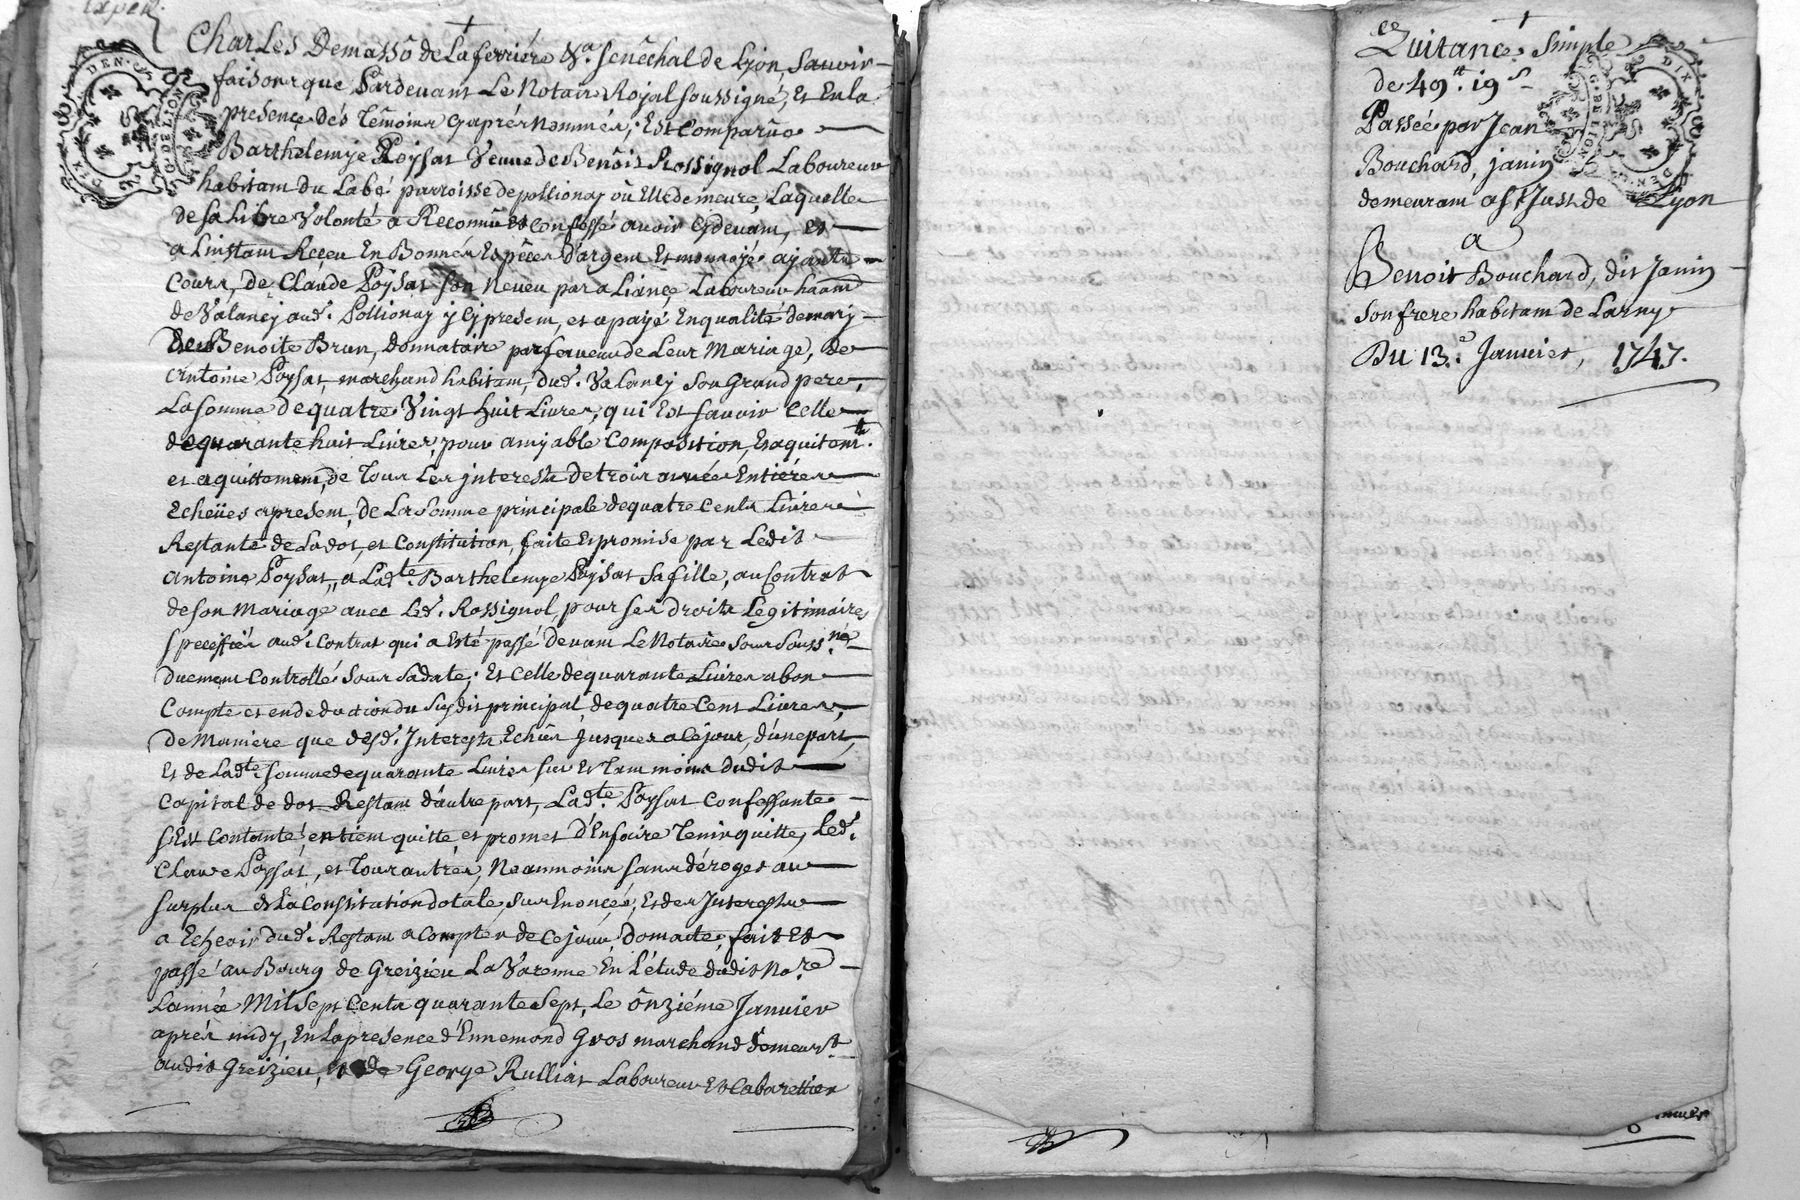 Expedi
Charles Demassô de Laferriére &.a senêchal de Lyon, Sauoir
faisons que Pardeuant Le Notaire Royal soussigné, Et Enla
presence dés Têmoins cyaprés Nommés, Est Comparüe
Barthelemye Poysat Veuue de Benôit Rossignol Laboureur
habitant du Labé parroisse de pollionay oû Elle demeure, Laquelle
de sa Libre Volonté a Reconnû et confessé auoir cydeuant, et
a Linstant Reçeu En Bonnes Espêces d'argent Et monnoyé ayant
Cours, de Claude Poysat son Neueu par aLiançe Laboureur habânt
de Valancy aud.t Pollionay ycy present, et a payé En qualité de mary
de Benoite Brun, donnataire par faveur de Leur Mariage, de
Antoine Poysat, marchand habitant, dud.t Valancy son Grand pere,
La somme de quatre Vingt huit Liures, qui Est sauoir celle
de quarante huit Liures, pour amyable Composition, Et aquitem.t
et aquittement, de Tous Les jnterests de trois années Entiéres
Echeües apresent, de La somme principale de quatre Cents Liures
Restante de La dot, et Constitution, faite Et promise par Ledit
Antoine Poysat, a Lad.te Barthelemye Poysat sa fille, au Contrat
de son Mariage avec Led.t Rossignol, pour ses droits Legitimaires
specifiés aud.t Contrat qui a Esté passé devant Le Notaire sous Souss.né
Duement Controllé sous sa date; Et Celle de quarante Liures abon
Compte et en deduction du susdit principal, de quatre Cent Liures,
de Maniére que desd.t Interests Echûs jusques a ce jour, d'une part,
Et de Lad.te somme de quarante Liures sur Et Tant moins dudit
Capital de dot Restant d'autre part, Lad.te Poysat Confessante
s'Est Contanté, en tient quitte, et promet d'En faire Tenir quitte, Led.t
Claude Poysat, et Tous autres, Neanmoins sans déroger au
surplus de La Constitution dotale, sus Enoncée, Et des Jnterests
a Echeoir dud.t Restant a Compter de ce jour, Dont acte, fait Et
passé au Bourg de Greizieu La Varenne En L'étude dudit No.re
L'année Mil Sept Cents quarante Sept, Le Onziéme Januier
aprés midy, En La presence d'Ennemond Gros marchand demeur.t
audit Greizieu, et de George Rulliat Laboureur Et Cabarettier
Quitance Simple
de 49.tt 19.s
Passée par Jean
Bouchard, janin
demeurant a S.t Just de Lyon
a
Benoit Bouchard, dit Janin
son frere habitant de Larny
Du 13.e Januier, 1747.